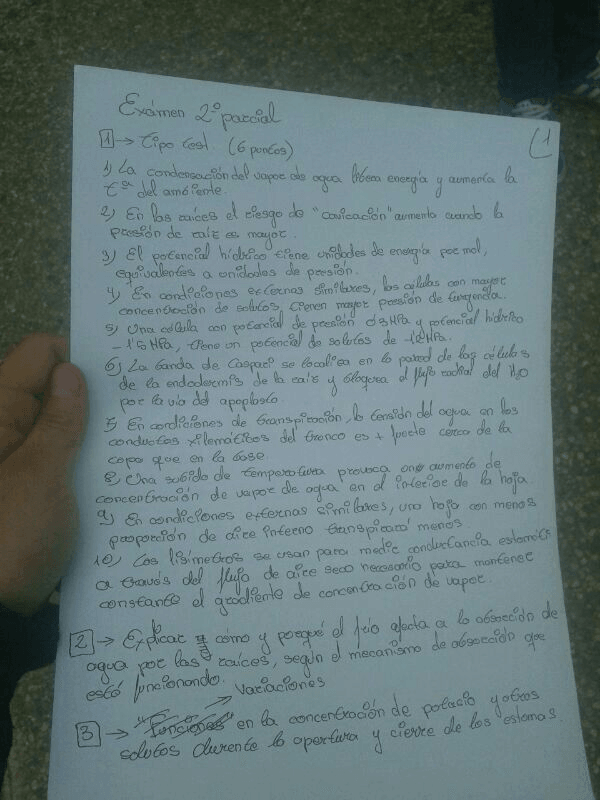 Exámen 2º parcial
(1
1 → Tipo test (6 puntos)
1) La condensación del vapor de agua libera energía y aumenta la
tª del ambiente.
2) En las raices el riesgo de "cavitación" aumenta cuando la
presión de raíz es mayor.
3) El potencial hídrico tiene unidades de energía por mol,
equivalentes a unidades de presión.
4) En condiciones externas similares, las células con mayor
concentración de solutos, tienen mayor presión de turgencia.
5) Una célula con potencial de presión 0'3 MPa y potencial hídrico
-1'5 MPa, tiene un potencial de solutos de -1'2 MPa.
6) La banda de Caspari se localiza en la pared de las células
de la endodermis de la raíz y bloquea el flujo radial del H2O
por la vía del apoplasto.
7) En condiciones de transpiración, la tensión del agua en los
conductos xilemáticos del tronco es + fuerte cerca de la
copa que en la base.
8) Una subida de temperatura provoca un aumento de
concentración de vapor de agua en el interior de la hoja
9) En condiciones externas similares, una hoja con menos
proporción de aire interno transpirará menos.
10) Los lisímetros se usan para medir conductancia estomática
a través del flujo de aire seco necesario para mantener
constante el gradiente de concentración de vapor.
2 → Explicar cómo y porqué el frío afecta a la absorción de
agua por las raíces, según el mecanismo de absorción que
está funcionando.
→ Variaciones
3 → Funciones en la concentración de potasio y otros
solutos durente la apertura y cierre de los estomas